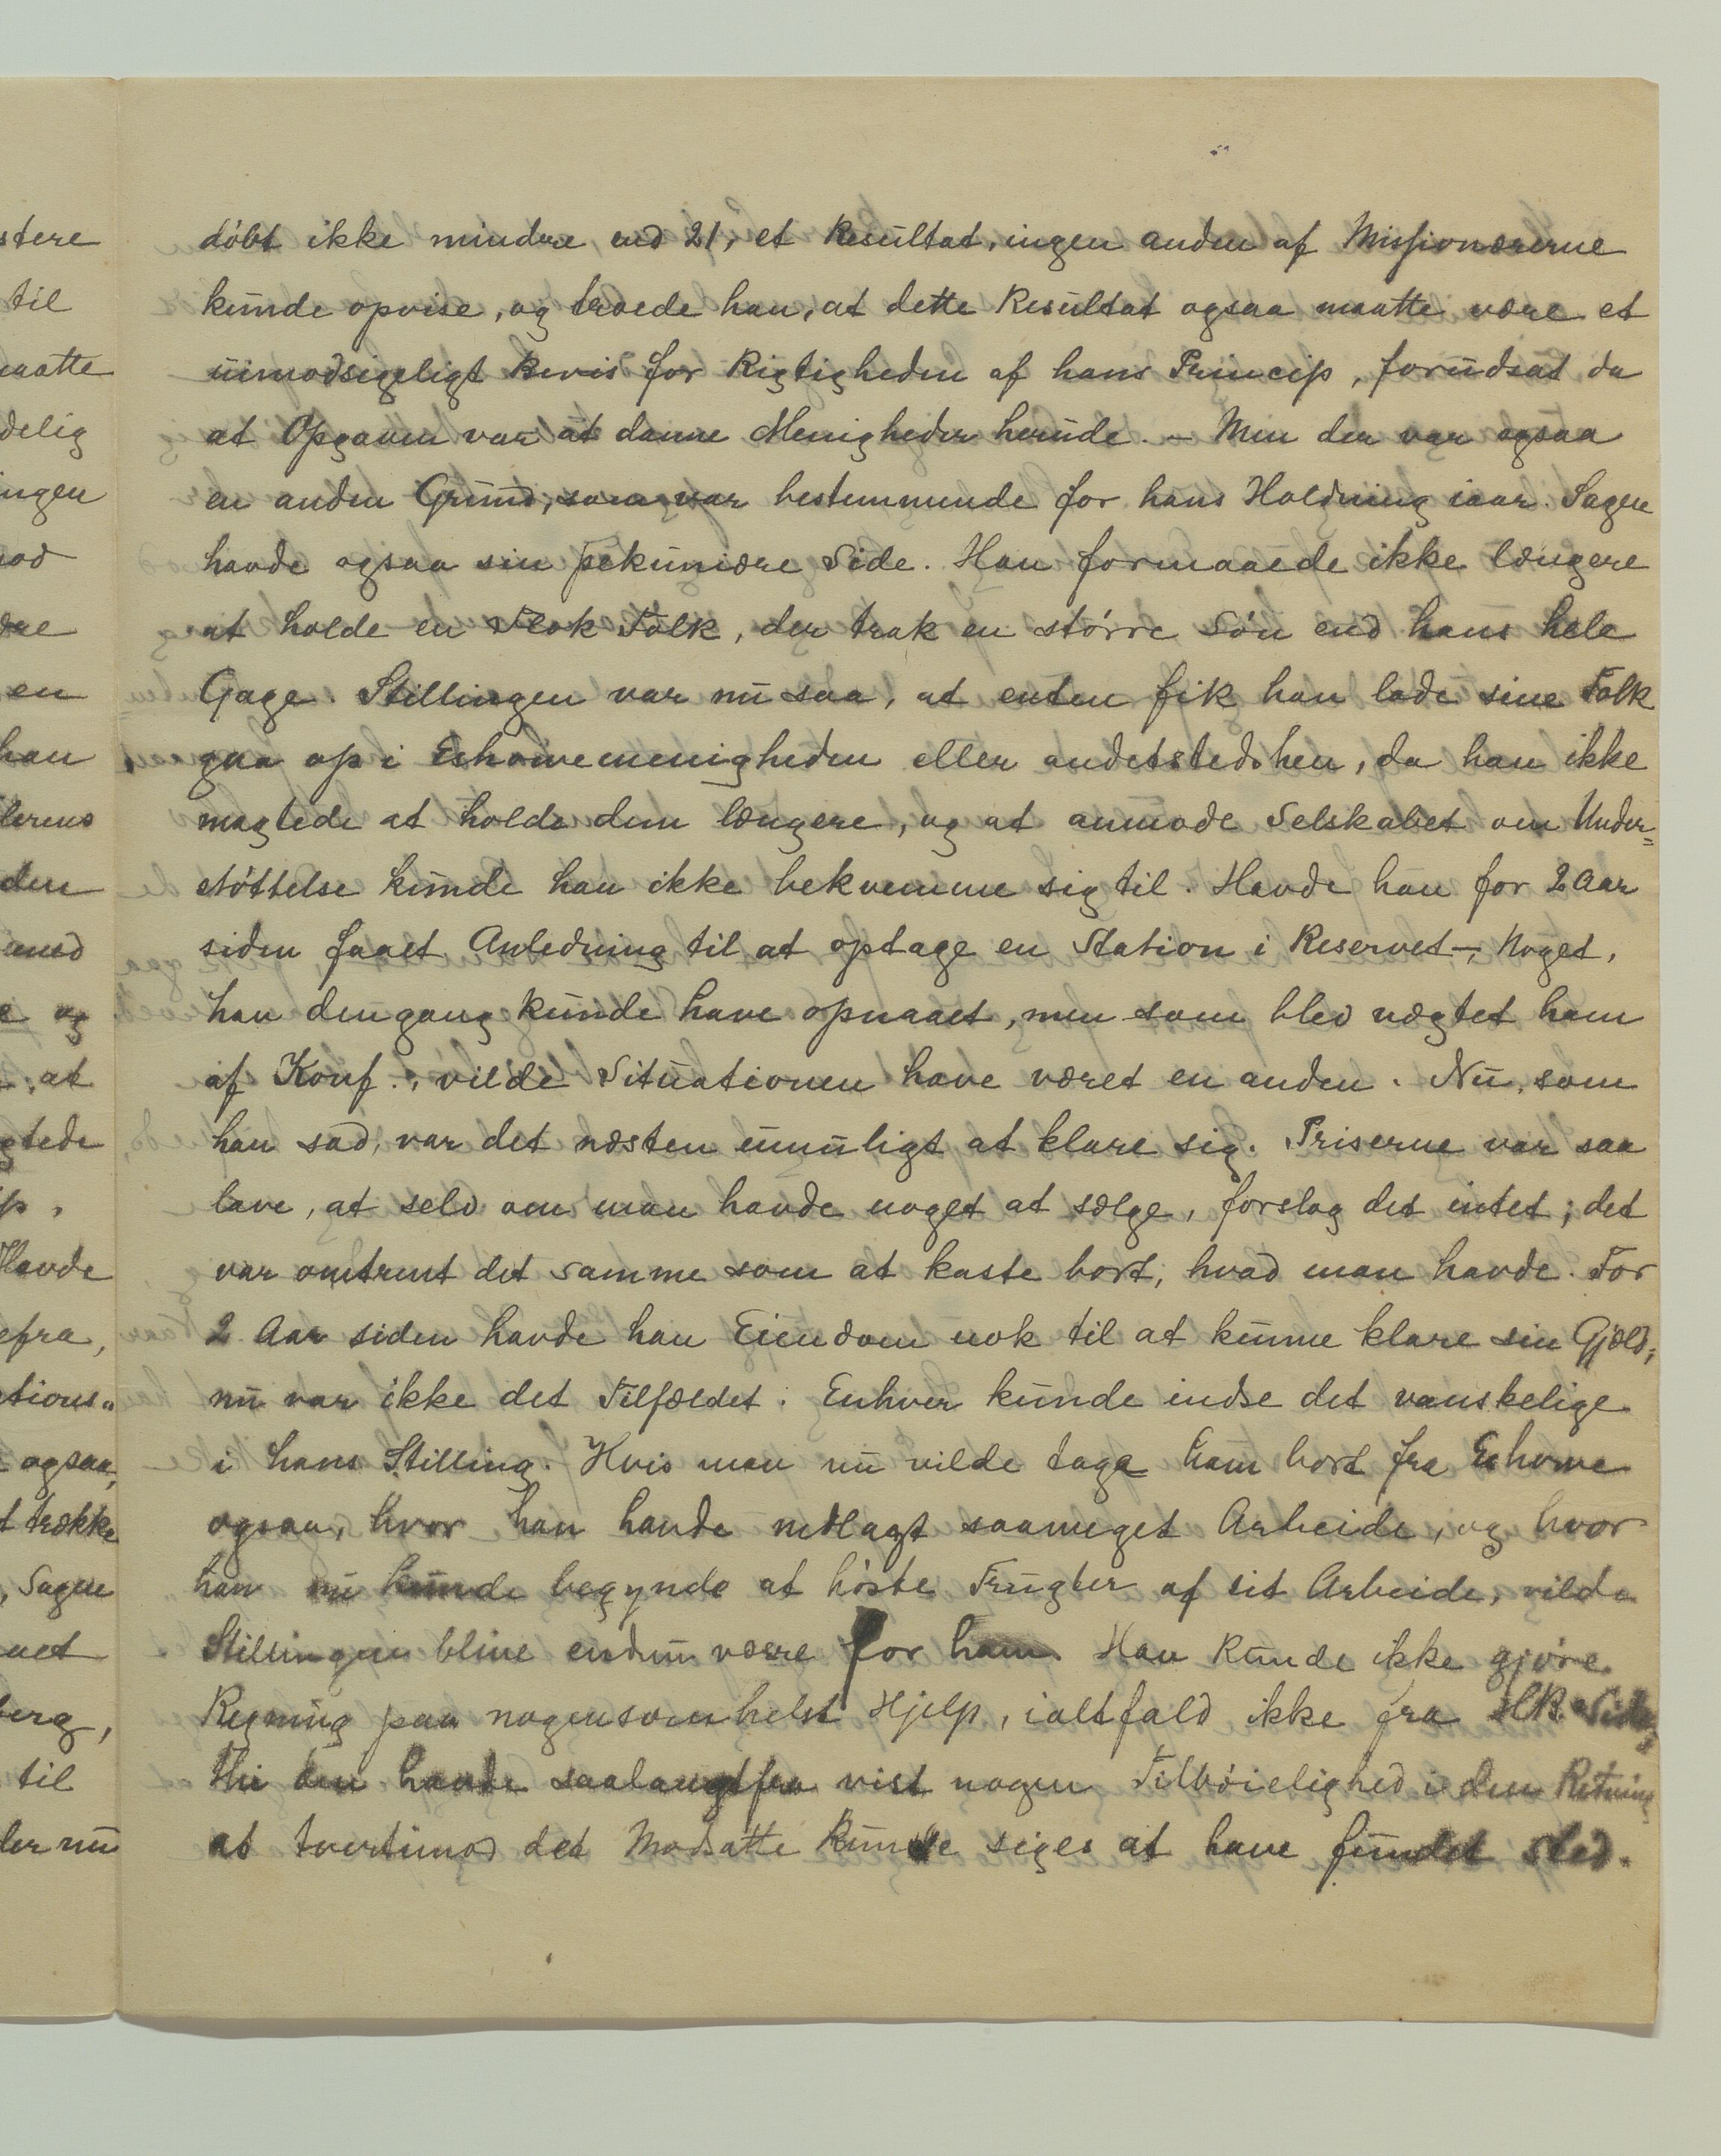 døbt ikke mindre end 21, et Resultat, ingen anden af Missionærerne
kunde opvise, og troede han, at dette Resultat ogsaa maatte være et
uimodsigeligt Bevis for Rigtigheden af hans Princip, forudsat da
at Opgaven var at danne Menigheder herude. – Men der var ogsaa
en anden Grund, som var bestemmende for hans Holdning iaar. Sagen
havde ogsaa sin pekuniære Side. Han formaaede ikke længere
at holde en Flok Folk, der trak en større Løn end hans hele
Gage. Stillingen var nu saa, at enten fik han lade sine Folk
gaa op i Eshowemenigheden eller andetstedshen, da han ikke
magtede at holde dem længere, og at anmode Selskabet om Under=
støttelse kunde han ikke bekvemme sig til. Havde han for 2 Aar
siden faaet Anledning til at optage en Station i Reservet –, Noget,
han dengang kunde have opnaaet, men som blev nægtet ham
af Konf., vilde Situationen have været en anden. Nu, som
han sad, var det næsten umuligt at klare sig. Priserne var saa
lave, at selv om man havde noget at sælge, forslog det intet; det
var omtrent det samme som at kaste bort, hvad man havde. For
2 Aar siden havde han Eiendom nok til at kunne klare sin Gjæld;
nu var ikke det Tilfældet. Enhver kunde indse det vanskelige
i hans Stilling. Hvis man nu vilde tage ham bort fra Eshowe
ogsaa, hvor han havde nedlagt saameget Arbeide, og hvor
han nu kunde begynde at høste Frugter af sit Arbeide, vilde
Stillingen blive endnu værre for ham. Han kunde ikke gjøre
Regning paa nogensomhelst Hjelp, ialtfald ikke fra HB Side,
thi den havde saalangtfra vist nogen Tilbøielighed i den Retning
at tvertimod det Modsatte kunde siges at have fundet Sted.
stere
til
maatte
delig
ingen
en
han
den
med
og
at
gtede
Havde
efra,
ations"
ogsaa,
trække
, Sagen
berg,
til
ler nu